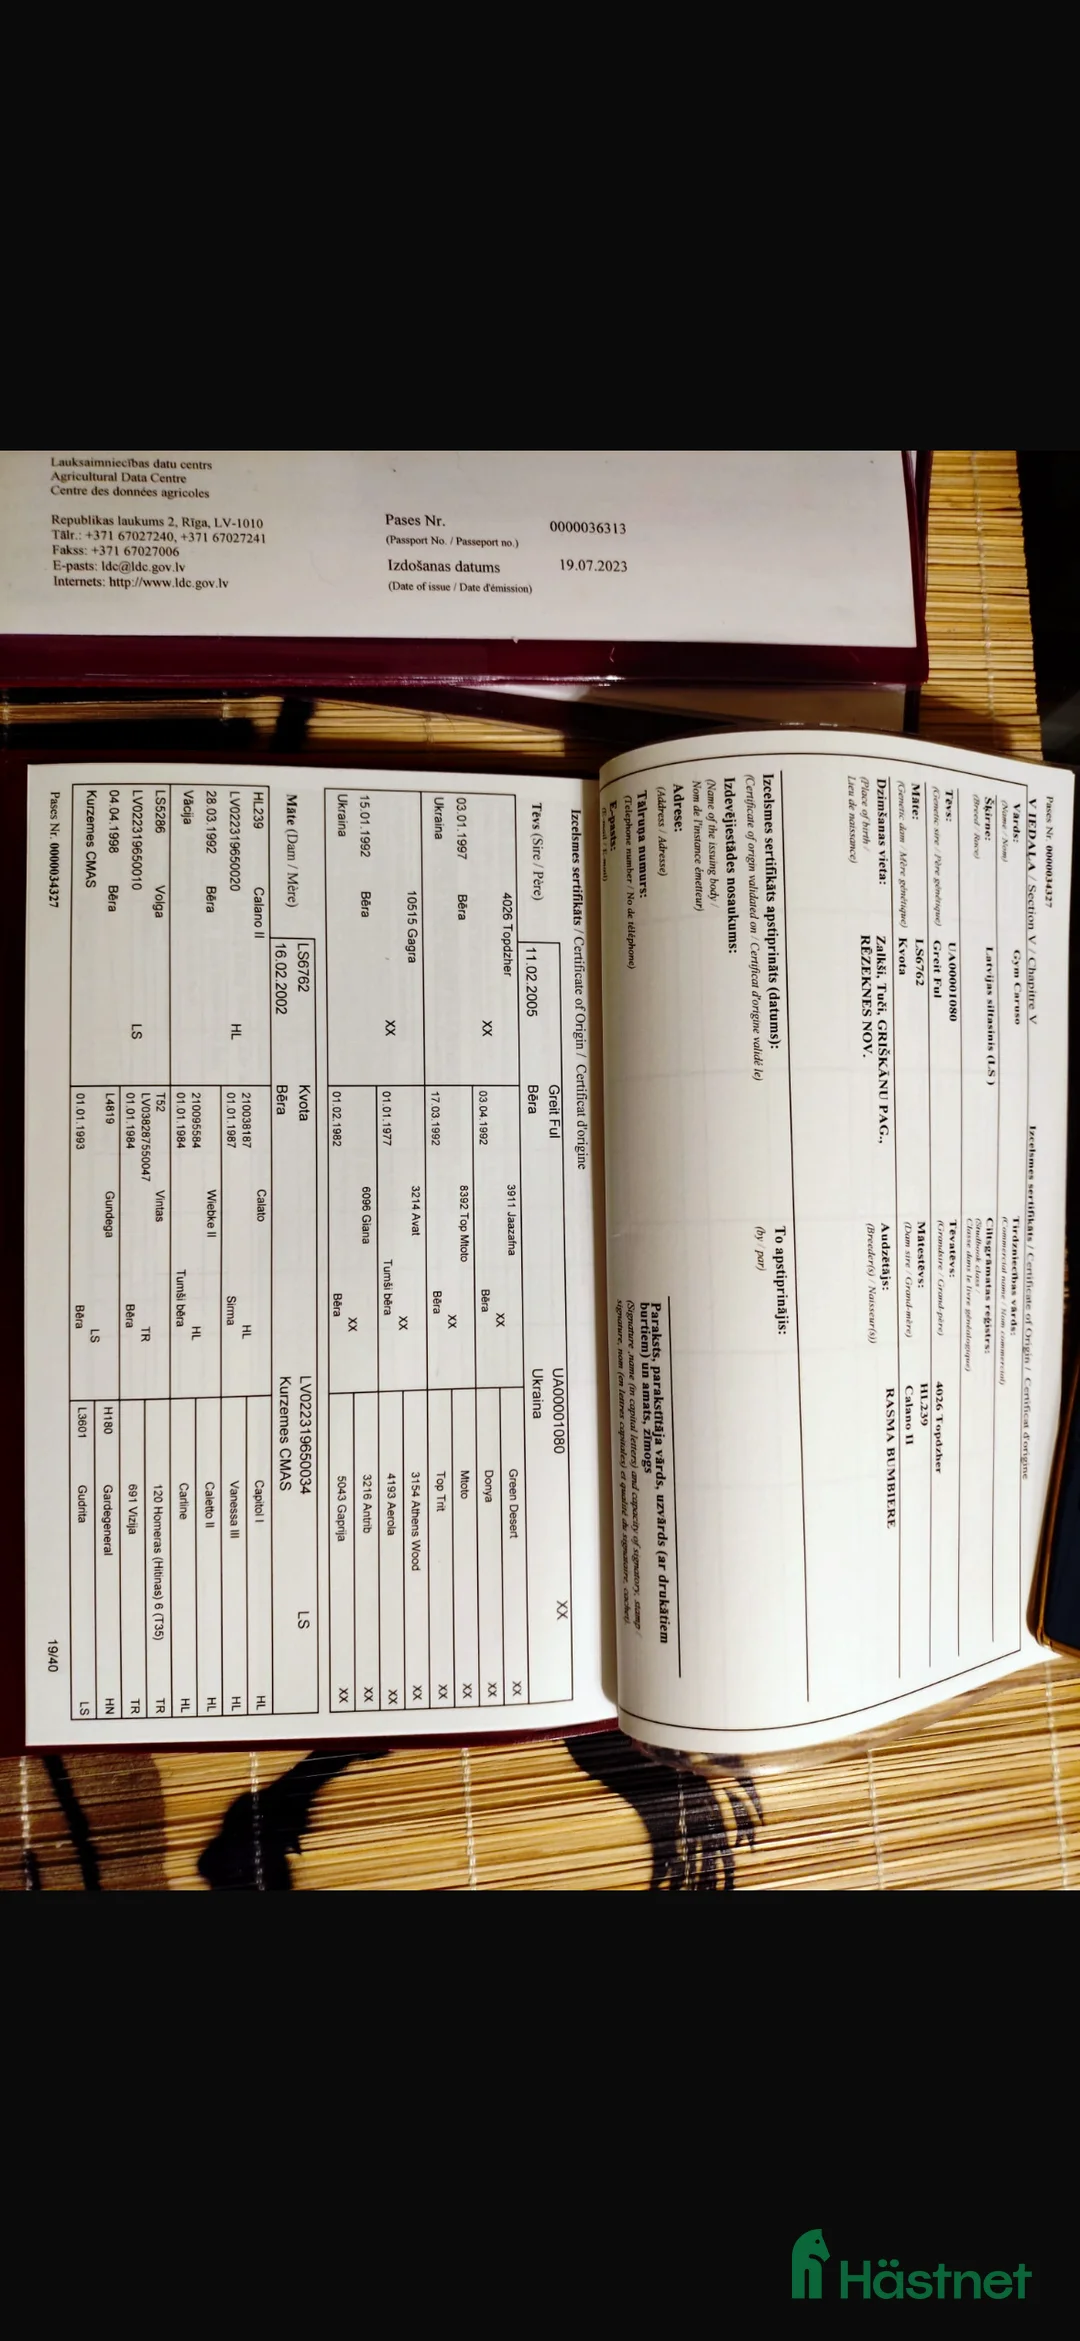 Lauksaimniecības datu centrs
Agricultural Data Centre
Centre des données agricoles
Republikas laukums 2, Rīga, LV-1010
Tālr.: +371 67027240, +371 67027241
Fakss: +371 67027006
E-pasts: ldc@ldc.gov.lv
Internets: http://www.ldc.gov.lv
Pases Nr. 0000036313
(Passport No. / Passeport no.)
Izdošanas datums 19.07.2023
(Date of issue / Date d'émission)
Pases Nr. 0000034327
V IEDAĻA / Section V / Chapitre V Izcelsmes sertifikāts / Certificate of Origin / Certificat d'origine
Vārds: Gym Caruso Tirdzniecības vārds:
(Name / Nom) (Commercial name / Nom commercial)
Šķirne: Latvijas siltasinis (LS) Ciltsgrāmatas reģistrs:
(Breed / Race) (Studbook class /
Classe dans le livre généalogique)
UA00001080
Tēvs: Greit Ful Tēvatēvs: 4026 Topdzher
(Genetic sire / Père génétique) (Grandsire / Grand-père)
LS6762 HL239
Māte: Kvota Mātestēvs: Calano II
(Genetic dam / Mère génétique) (Dam sire / Grand-mère)
Dzimšanas vieta: Zalkši, Tuči, GRIŠKĀNU PAG., Audzētājs: RASMA BUMBIERE
RĒZEKNES NOV.
(Place of birth / (Breeder(s) / Naisseur(s))
Lieu de naissance)
Izcelsmes sertifikāts apstiprināts (datums): To apstiprinājis:
(Certificate of origin validated on / Certificat d'origine validé le) (by / par)
Izdevējiestādes nosaukums:
(Name of the issuing body /
Nom de l'instance émetteur)
Adrese:
(Address / Adresse)
Paraksts, parakstītāja vārds, uzvārds (ar drukātiem
burtiem) un amats, zīmogs
Talruņa numurs:
(Telephone number / No de téléphone)
(Signature, name (in capital letters) and capacity of signatory, stamp /
signature, nom (en lettres capitales) et qualité du signataire, cachet)
E-pasts:
Izcelsmes sertifikāts / Certificate of Origin / Certificat d'origine
Greit Ful UA00001080 XX
Tēvs (Sire / Père) 11.02.2005 Bēra Ukraina
4026 Topdzher
XX
03.01.1997 Bēra
Ukraina
3911 Jaazafna XX
03.04.1992 Bēra
Green Desert XX
Donya XX
8392 Top Mtoto XX
17.03.1992 Bēra
Mtoto XX
Top Trit XX
10515 Gagra
XX
15.01.1992 Bēra
Ukraina
3214 Avat XX
01.01.1977 Tumši bēra
3154 Athens Wood XX
4193 Aerola XX
6096 Giana XX
01.02.1982 Bēra
3216 Antrib XX
5043 Gaprija XX
LS6762 Kvota LV022319650034 LS
Māte (Dam / Mère) 16.02.2002 Bēra Kurzemes CMAS
HL239 Calano II
LV022319650020 HL
28.03.1992 Bēra
Vācija
210038187 Calato HL
01.01.1987 Sirma
Capitol I HL
Vanessa III HL
210095584 Wiebke II HL
01.01.1984 Tumši bēra
Caletto II HL
Carline HL
LS5286 Volga
LV022319650010 LS
04.04.1998 Bēra
Kurzemes CMAS
T52 Vintas
LV038287550047 TR
01.01.1984 Bēra
120 Homeras (Hitinas) 6 (T35) TR
691 Vizija TR
L4819 Gundega LS
01.01.1993 Bēra
H180 Gardegeneral HN
L3601 Gudrita LS
Pases Nr. 0000034327 19/40
Hästnet